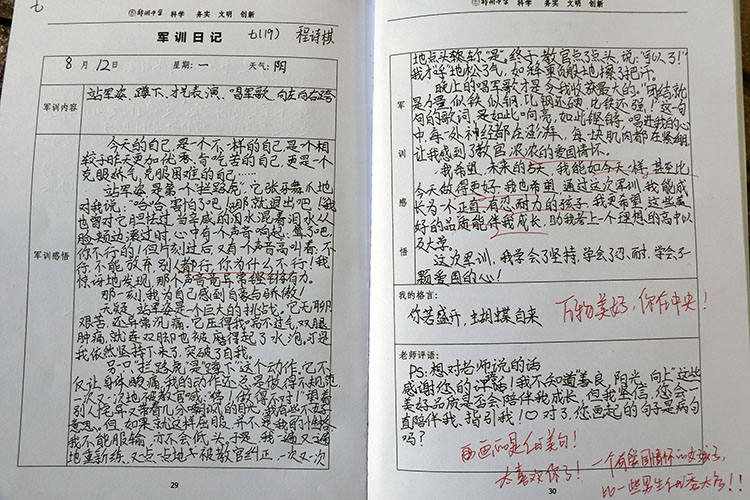 七
郅州中学 科学 务实 文明 创新
军训日记 七(19) 程诗棋
8月12日 星期：一 天气：阴
军训内容
站军姿、蹲下、才艺表演、唱军歌、向左向右跨
军训感悟
今天的自己,是一个不一样的自己,是一个相
较于昨天更加优秀、会吃苦的自己,更是一个
克服娇气,克服困难的自己……
站军姿,是第一个“拦路虎”,它张牙舞爪地
对我说:“哈哈,害怕了吧!那就退出吧!”我
也曾对它胆怯过,当辛咸的泪水混着泪水从
脸颊边滚过时,心中有一个声音响起:算了吧
你不行的!但片刻过后又有个声音高叫着:不
行,不能放弃,别人都行,你为什么不行!我
惊讶地发现,那个声音竟异常铿锵有力。
那一刻,我为自己感到自豪与骄傲!
无疑,站军姿是一个巨大的挑战,它无聊
艰苦,还异常沉痛,它压得我喘不过气,双腿
肿痛,就连双脚也被磨得起了水泡。可是
我依然坚持下来了,突破了自我。
另一只“拦路虎”是“蹲下”这个动作,它不
仅让身体酸痛,我的动作还总是做得不规范
一次又一次地被教官喊:“停!做得不对!”望着
意思,但如果就这样屈服,并不是我的性格
我不能服输,亦不会低头,于是,我一遍又一遍
地重新练,又一点一点地去被教官纠正,一次又一次
29
郅州中学 科学 务实 文明 创新
军训感悟
地点头喊“是”。终于,教官点了点头,说:“可以了!”
我才松了气,如释重负般地擦了把汗。
晚上的唱军歌才是令我收获最大的。“团结就
是力量,似铁似钢,比钢还硬,比铁还强!”这一句
句的歌词,是如此响亮,如此铿锵,唱进我的心
中,每一处神经都在澎湃,每一块肌肉都在紧绷
让我感到了教官浓浓的爱国情怀。
我希望,未来的5天,我能如今天一样,甚至比
今天做得更好,我也希望,通过这次军训,我能成
长为一个正直、有忍耐力的孩子,我更希望,这些美
好的品质能伴我成长,助我考上一个理想的高中以
及大学。
这次军训,我学会了坚持,学会了忍耐,学会了一
颗爱国的心!
我的格言：
你若盛开,蝴蝶自来
万物美好,你在中央!
老师评语：
PS:想对老师说的话
感谢您的评语!我不知道“善良,阳光,向上”这些
美好品质是否会陪伴我成长,但我坚信,您会一
直陪伴我、指引我!(O对了,您画起的句子是病句
吗?
画画的是你的美句!
太喜欢你了!
一个有爱国情怀的女孩子,
比一些男生们
30